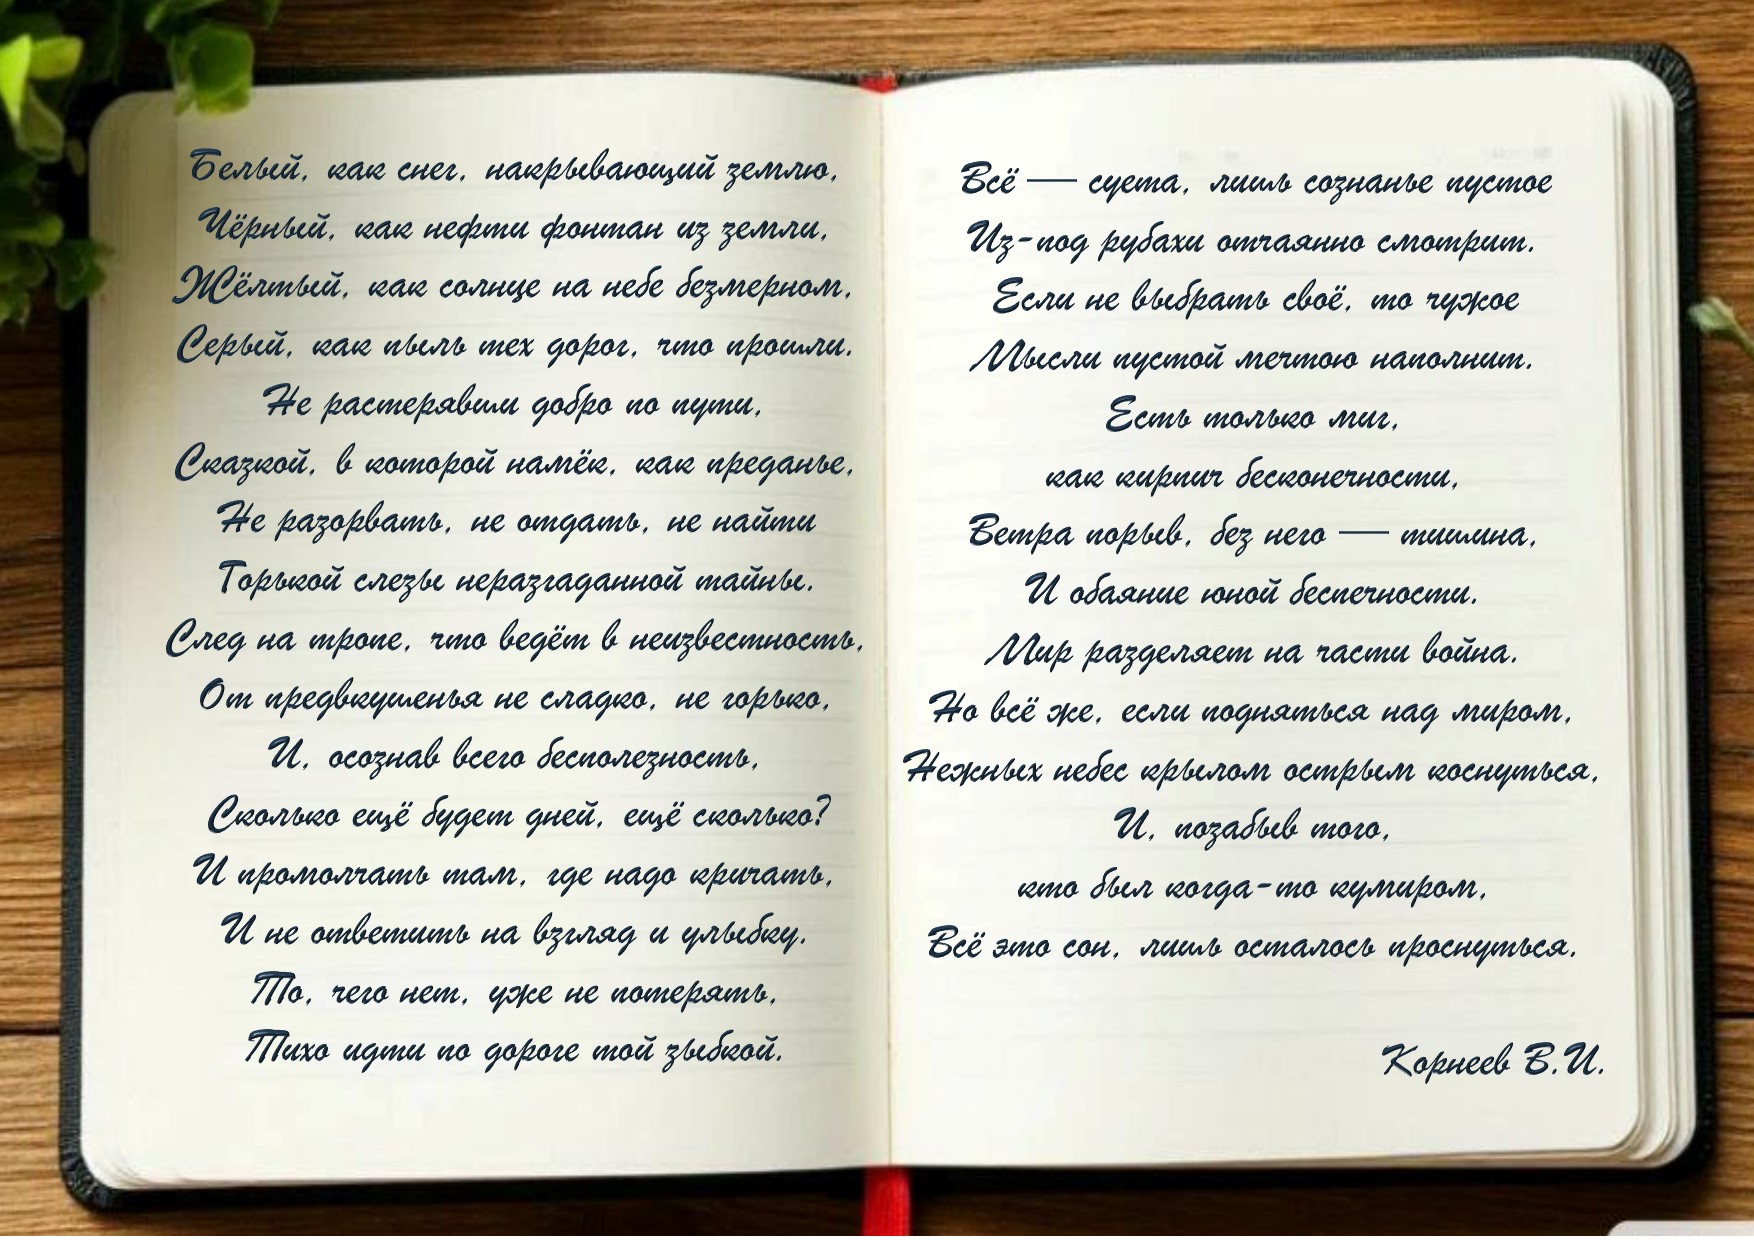 Белый, как снег, накрывающий землю,
Чёрный, как нефти фонтан из земли,
Жёлтый, как солнце на небе безмерном,
Серый, как пыль тех дорог, что прошли.
Не растерявши добро по пути,
Сказкой, в которой намёк, как преданье,
Не разорвать, не отдать, не найти
Горькой слезы неразгаданной тайны.
След на тропе, что ведёт в неизвестность,
От предвкушенья не сладко, не горько,
И, осознав всего бесполезность,
Сколько ещё будет дней, ещё сколько?
И промолчать там, где надо кричать,
И не ответить на взгляд и улыбку.
То, чего нет, уже не потерять,
Тихо идти по дороге той зыбкой.
Всё — суета, лишь сознанье пустое
Из-под рубахи отчаянно смотрит.
Если не выбрать своё, то чужое
Мысли пустой мечтою наполнит.
Есть только миг,
как кирпич бесконечности,
Ветра порыв, без него — тишина,
И обаяние юной беспечности.
Мир разделяет на части война.
Но всё же, если подняться над миром,
Нежных небес крылом острым коснуться,
И, позабыв того,
кто был когда-то кумиром,
Всё это сон, лишь осталось проснуться.
Корнеев В.И.